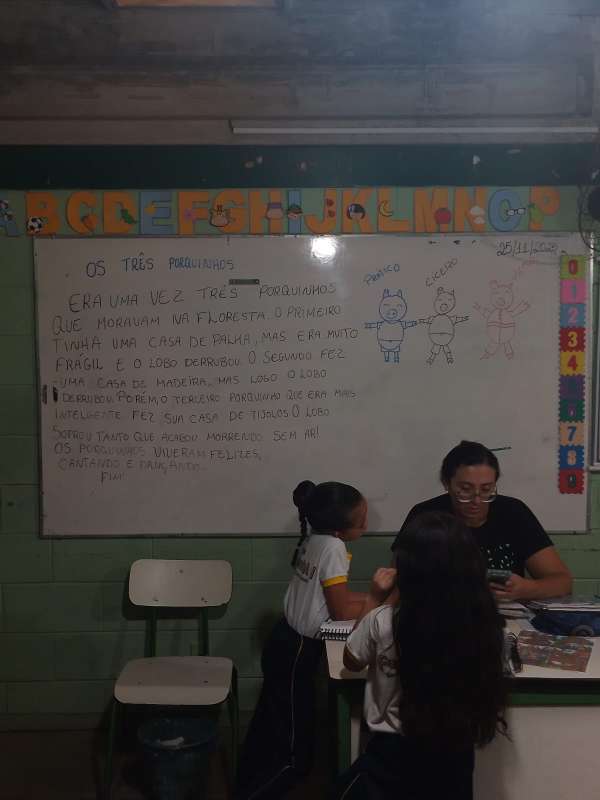 A B C D E F G H I J K L M N O P
25/11/2025
OS TRÊS PORQUINHOS
PRATICO
CICERO
ERA UMA VEZ TRÊS PORQUINHOS
QUE MORAVAM NA FLORESTA. O PRIMEIRO
TINHA UMA CASA DE PALHA, MAS ERA MUITO
FRÁGIL E O LOBO DERRUBOU. O SEGUNDO FEZ
UMA CASA DE MADEIRA, MAS LOGO O LOBO
DERRUBOU. PORÉM, O TERCEIRO PORQUINHO QUE ERA MAIS
INTELIGENTE FEZ SUA CASA DE TIJOLOS. O LOBO
SOPROU TANTO QUE ACABOU MORRENDO SEM AR!
OS PORQUINHOS VIVERAM FELIZES,
CANTANDO E DANÇANDO.
FIM
0
1
2
3
4
6
7
8
9